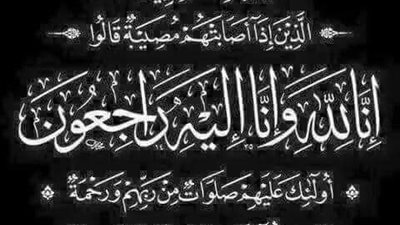 الَّذِينَ إِذَا أَصَابَتْهُمْ مُصِيبَةٌ قَالُوا
إِنَّا لِلَّهِ وَإِنَّا إِلَيْهِ رَاجِعُونَ
أُولَٰئِكَ عَلَيْهِمْ صَلَوَاتٌ مِنْ رَبِّهِمْ وَرَحْمَةٌ